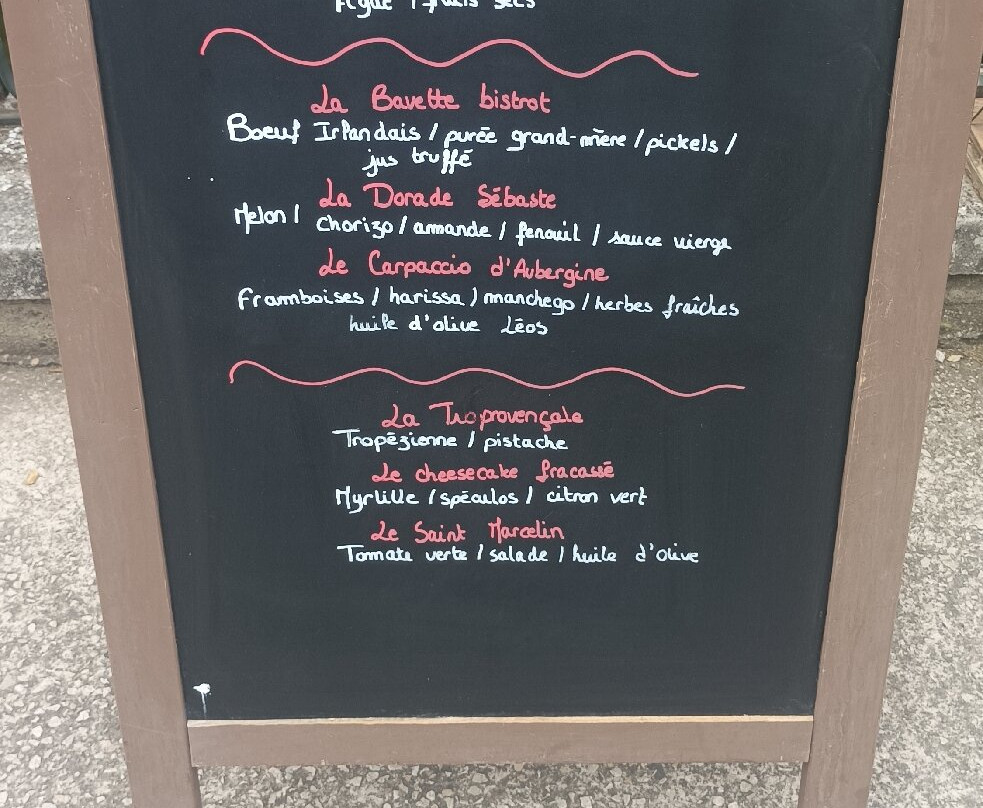 Figue / fruits secs
La Bavette bistrot
Boeuf Irlandais / purée grand-mère / pickels /
jus truffé
La Dorade Sébaste
Melon / chorizo / amande / fenouil / sauce vierge
Le Carpaccio d'Aubergine
Framboises / harissa / manchego / herbes fraîches
huile d'olive Léos
La Tropprovençale
Tropézienne / pistache
Le cheesecake fracassé
Myrtille / spéculos / citron vert
Le Saint Marcelin
Tomate verte / salade / huile d'olive